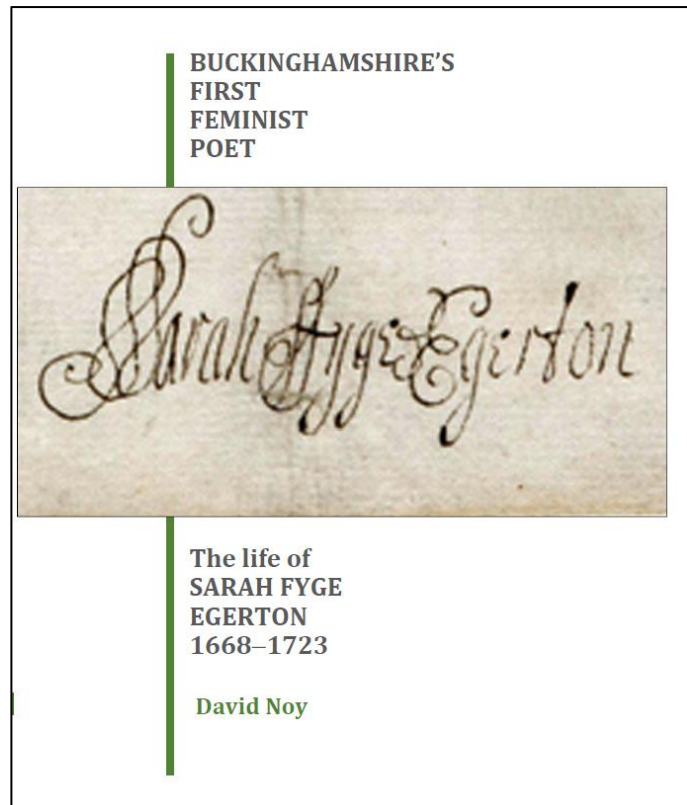 BUCKINGHAMSHIRE’S
FIRST
FEMINIST
POET
Sarah Fyge Egerton
The life of
SARAH FYGE
EGERTON
1668–1723
David Noy